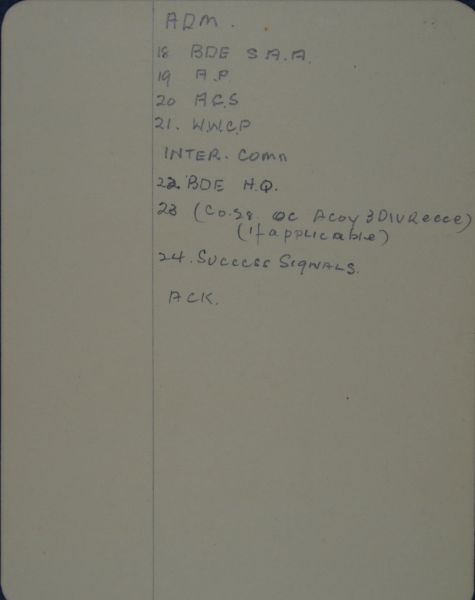 ADM.
18 BDE S.A.A.
19 A.P
20 ACS
21. W.W.C.P
INTER. COMN
22. BDE H.Q.
23 (Co-Sg. OC Acoy 3 DIV Recce)
(if applicable)
24. SUCCESS SIGNALS.
ACK.